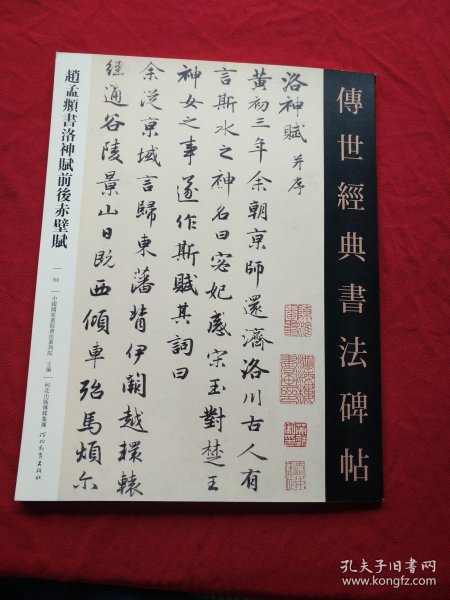 傳世經典書法碑帖
洛神賦 并序
黃初三年余朝京師還濟洛川古人有
言斯水之神名曰宓妃感宋玉對楚王
神女之事遂作斯賦其詞曰
余從京域言歸東藩背伊闕越轘轅
經通谷陵景山日既西傾車殆馬煩尔
趙孟頫書洛神賦前後赤壁賦
60
中國國家畫院書法篆刻院 主編
河北出版傳媒集團
河北教育出版社
孔夫子旧书网
www.kongfz.com